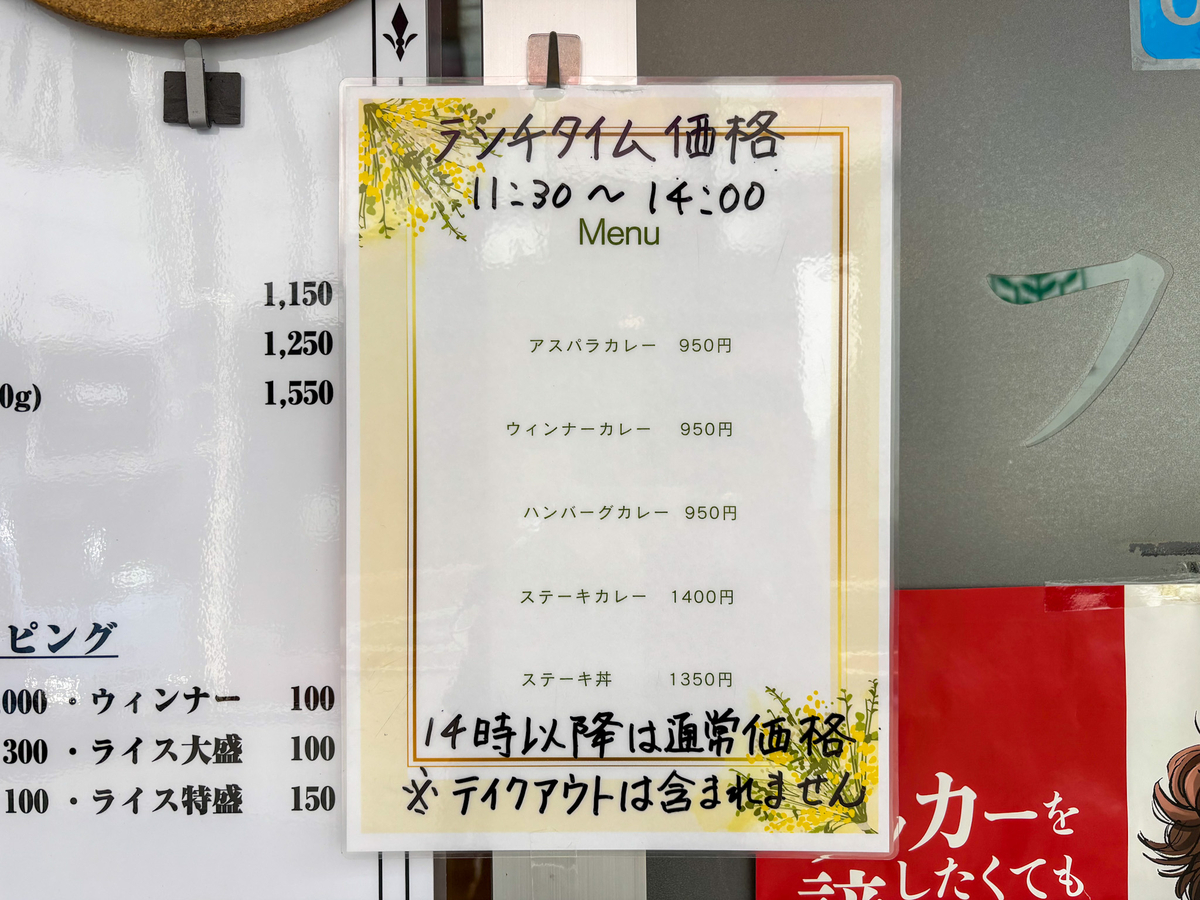 1,150
1,250
0g) 1,550
ピング
000 ・ウィンナー 100
300 ・ライス大盛 100
100 ・ライス特盛 150
ランチタイム価格
11:30〜14:00
Menu
アスパラカレー 950円
ウィンナーカレー 950円
ハンバーグカレー 950円
ステーキカレー 1400円
ステーキ丼 1350円
14時以降は通常価格
※テイクアウトは含まれません
フ
カーを
したくても